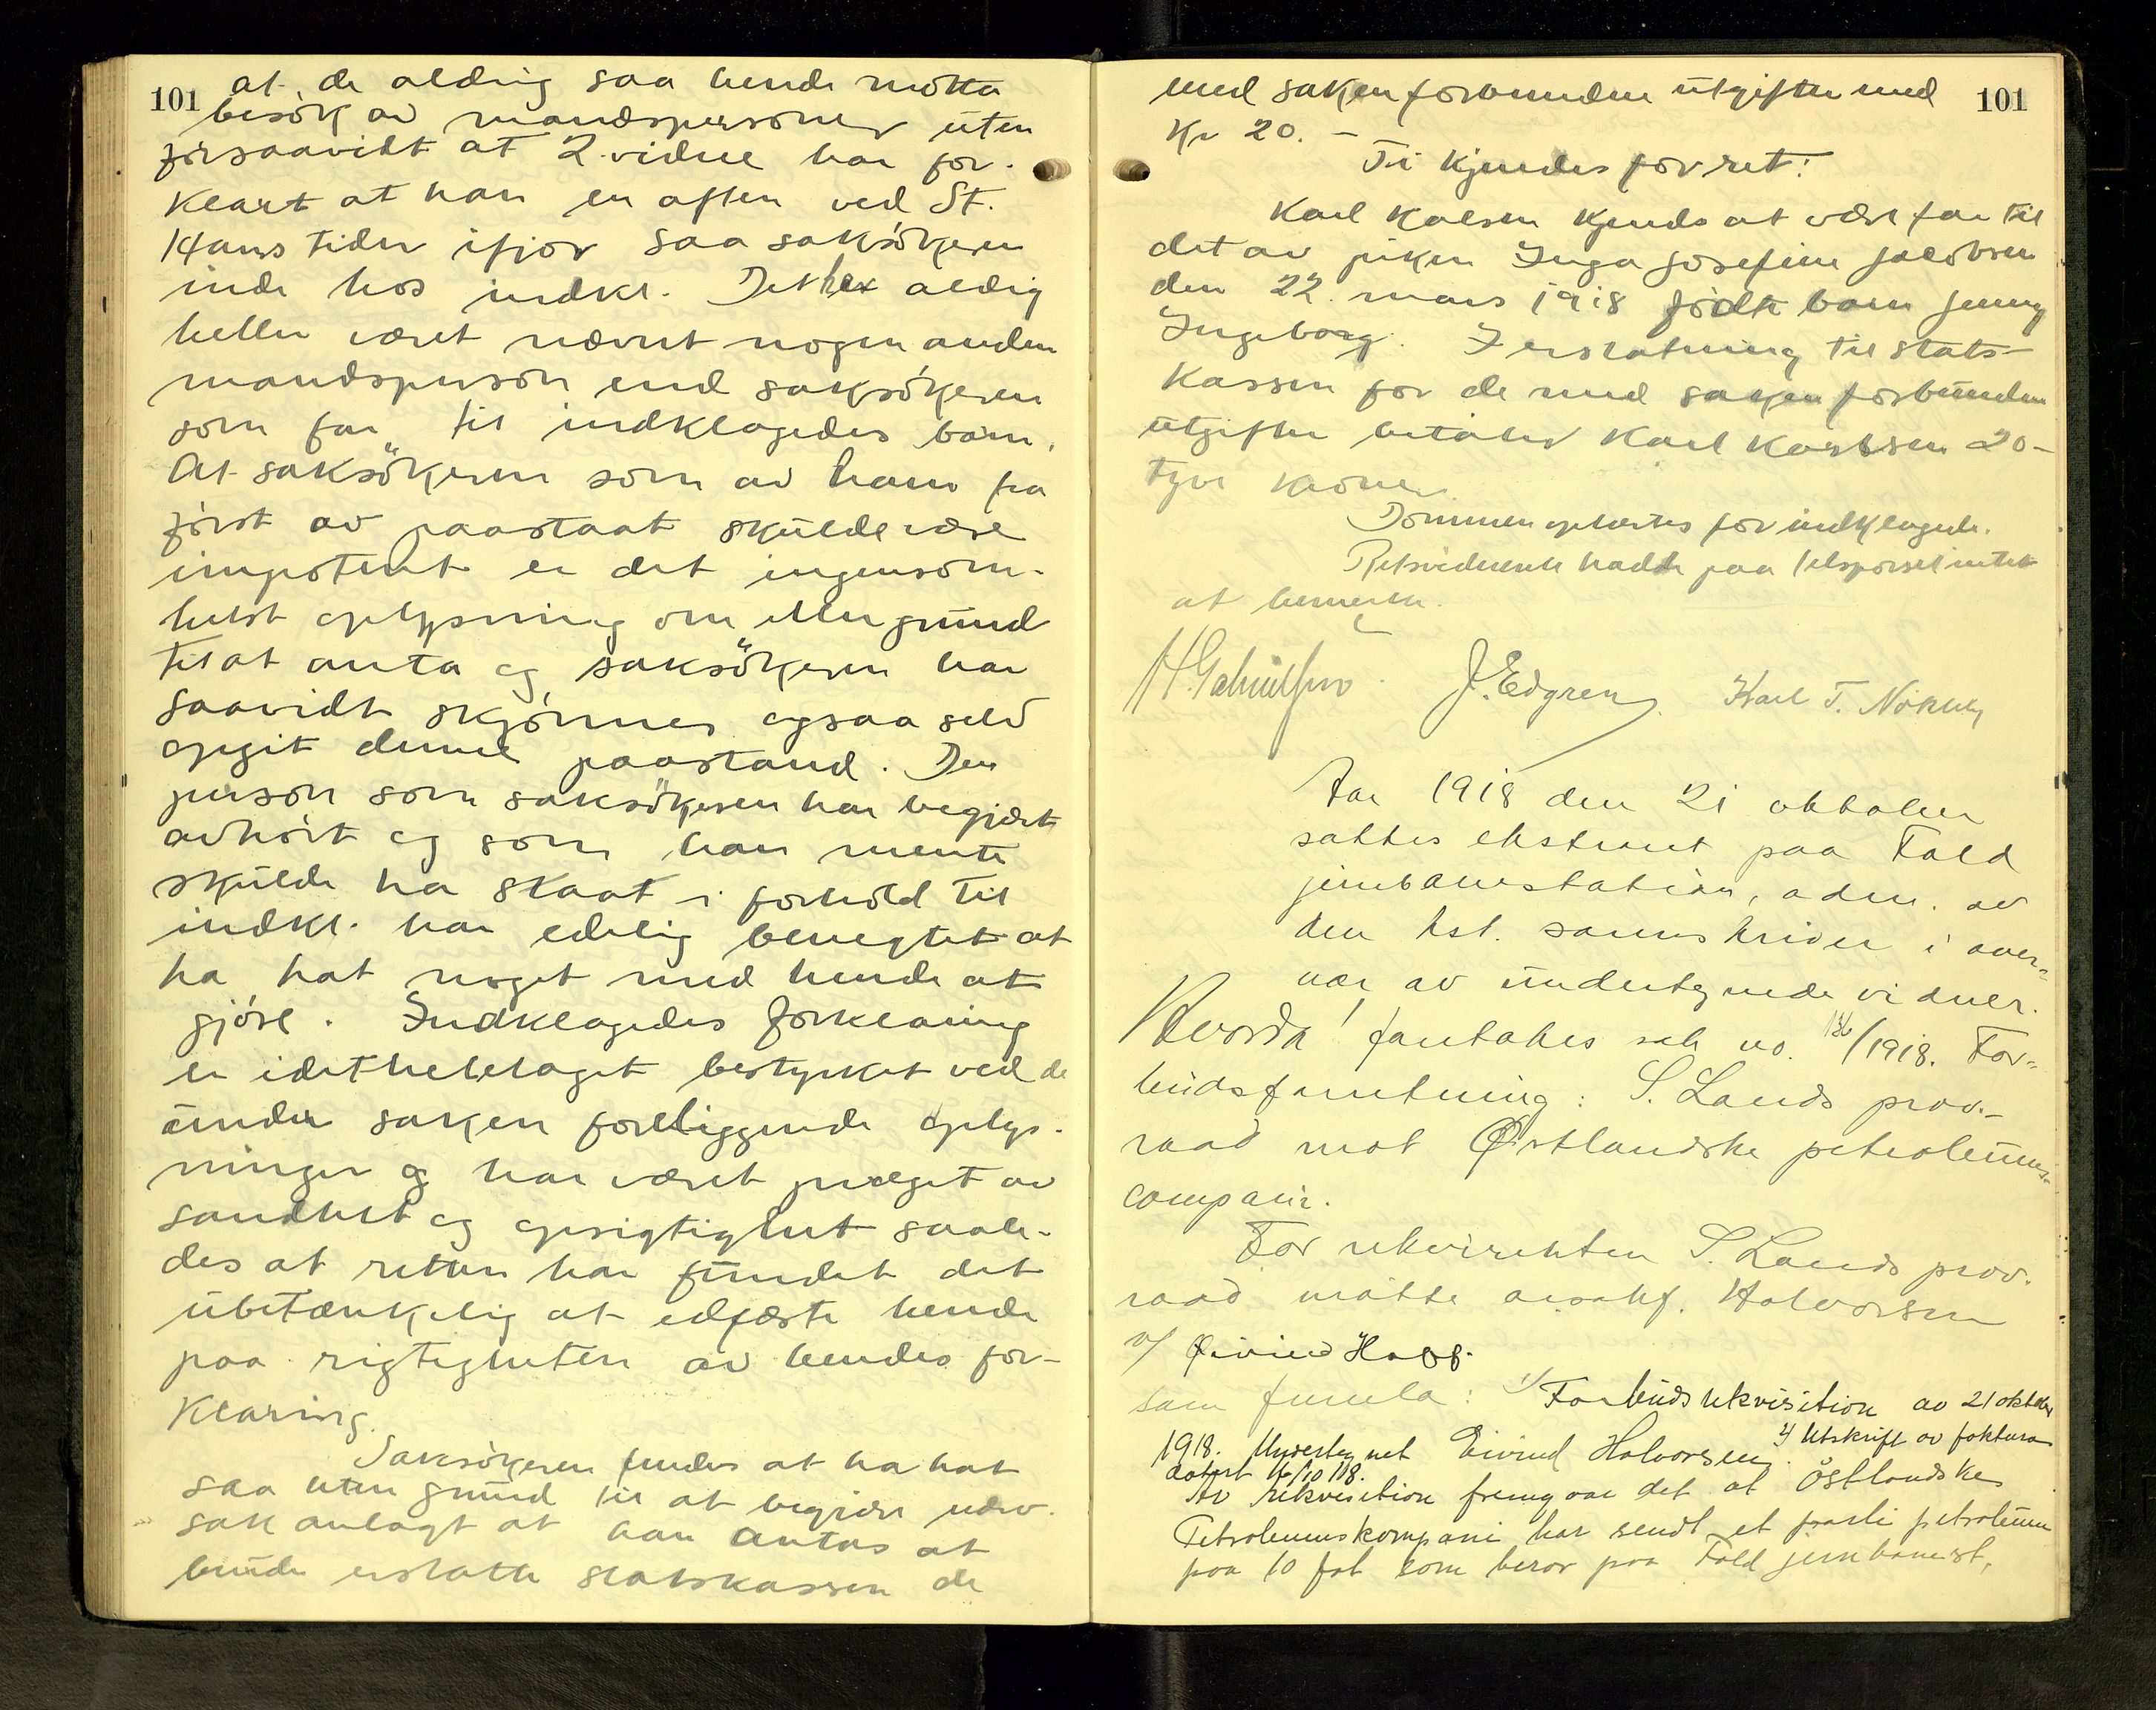 101
at de aldrig saa hende motta
besök av mandspersoner uten
forsaavidt at 2. vidne har for-
klart at han en aften ved St.
Hans tider ifjor saa saksökeren
inde hos indkl. Det har aldrig
heller været nævnt nogen anden
mandsperson end saksökeren
som far til indklagedes barn.
At saksökeren som av ham fra
först av paastaat skulde være
impotent er det ingensom-
helst oplysning om eller grund
til at anta og saksökeren har
saavidt skjönnes ogsaa selv
opgit denne paastand. Den
person som saksökeren har begjært
avhört og som han mente
skulde ha staat i forhold til
indkl. har edelig benegtet at
ha hat noget med hende at
gjöre. Indklagedes forklaring
er idethelelaget bestyrket ved de
under saken foreliggende oplys-
ninger og har været præget av
sandhet og oprigtighet saale-
des at retten har fundet det
ubetænkelig at edfæste hende
paa rigtigheten av hendes for-
klaring.
Saksökeren findes at ha hat
saa liten grund til at begjære nærv.
sak anlagt at han antas at
burde erstatte statskassen de
101
med saken forbundne utgifter med
Kr 20. -
Ti kjendes for ret:
Karl Karlsen kjendes at være far til
det av piken Inga Josefine Jacobsen
den 22. mars 1918 födte barn Jenny
Ingeborg. I erstatning til stats-
kassen for de med saken forbundne
utgifter betaler Karl Karlsen 20-
tyve kroner.
Dommen oplæstes for indklagede.
Retsvidnerne hadde paa tilspørsel intet
at bemerke.
J. Edgren. Karl T.
Aar 1918 den 21 oktober
sattes ekstraret paa Fald
jernbanestation, adm. av
den kst. sorenskriver i over-
vær av undertegnede vidner.
Hvorda! foretokes sak no. /1918. For-
budsforretning: S. Lands prov.-
raad mot Østlandske petroleums-
compani.
For rekvirenten S. Lands prov.
raad møtte Halvorsen
v/ Øivind
som fremla: 1/ Forbudsrekvisition av 21 oktober
1918. Undertegnet Eivind Halvorsen. 2/ Utskrift av faktura
datert 16/10 18.
Av rekvisition fremgaar det at Östlandske
Petroleumskompani har sendt et parti petroleum
paa 10 fat som beror paa Fald jernbanest,